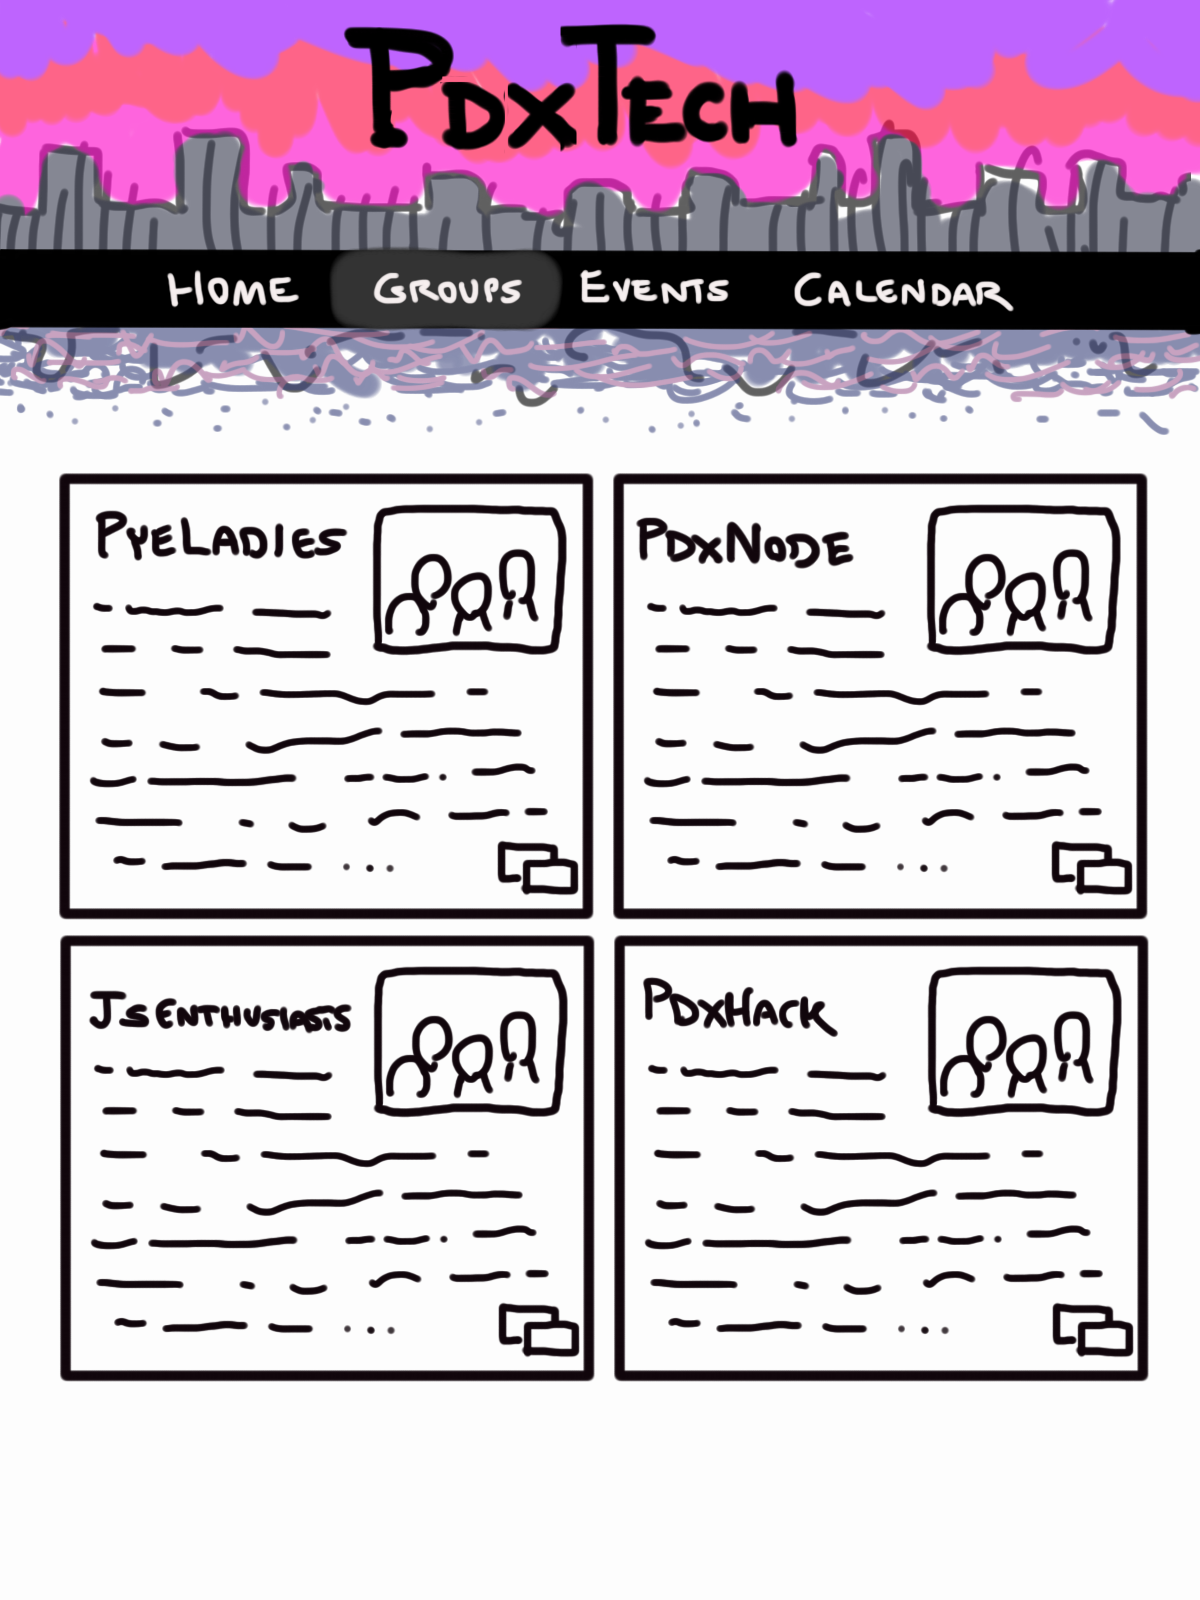 PDXTECH
HOME GROUPS EVENTS CALENDAR
PYELADIES
PDXNODE
JS ENTHUSIASTS
PDXHACK